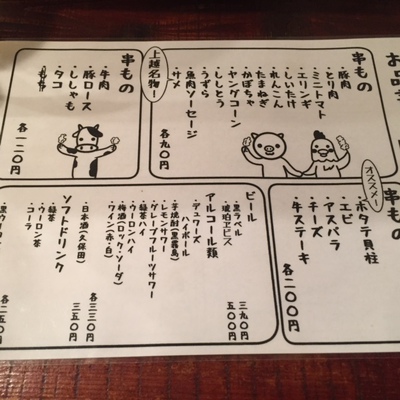 お品
串もの
・豚肉
・とり肉
・ミニトマト
・エリンギ
・しいたけ
・れんこん
・たまねぎ
・かぼちゃ
・ヤングコーン
・ししとう
・うずら
・魚肉ソーセージ
・サメ
上越名物!
各九〇円
串もの
・牛肉
・豚ロース
・ししゃも
・タコ
各一二〇円
串もの
オススメ!
・ホタテ貝柱
・エビ
・アスパラ
・チーズ
・牛ステーキ
各二〇〇円
ビール
・黒ラベル 三九〇円
・琥珀ヱビス 五〇〇円
アルコール類
・デュワーズ
ハイボール
・芋焼酎(黒霧島)
・レモンサワー
・グレープフルーツサワー
・緑茶ハイ
・ウーロンハイ
・梅酒(ロック・ソーダ)
・ワイン(赤・白)
各三三〇円
・日本酒(久保田) 三五〇円
ソフトドリンク
・緑茶
・ウーロン茶
・コーラ
各二五〇円